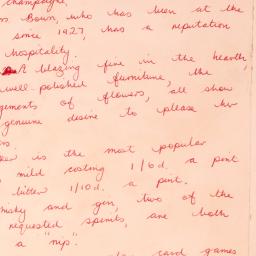 champagne,
s. Bown, who has been at the
since 1927, has a reputation
hospitality.
A blazing fire in the hearth,
well-polished furniture, the
gements of flowers, all show
genuine desire to please her
rs.
er is the most popular
mild costing 1/6d. a pint
bitter 1/10d. a pint.
hisky and gin, two of the
requested spirits, are both
a "nip".
card games